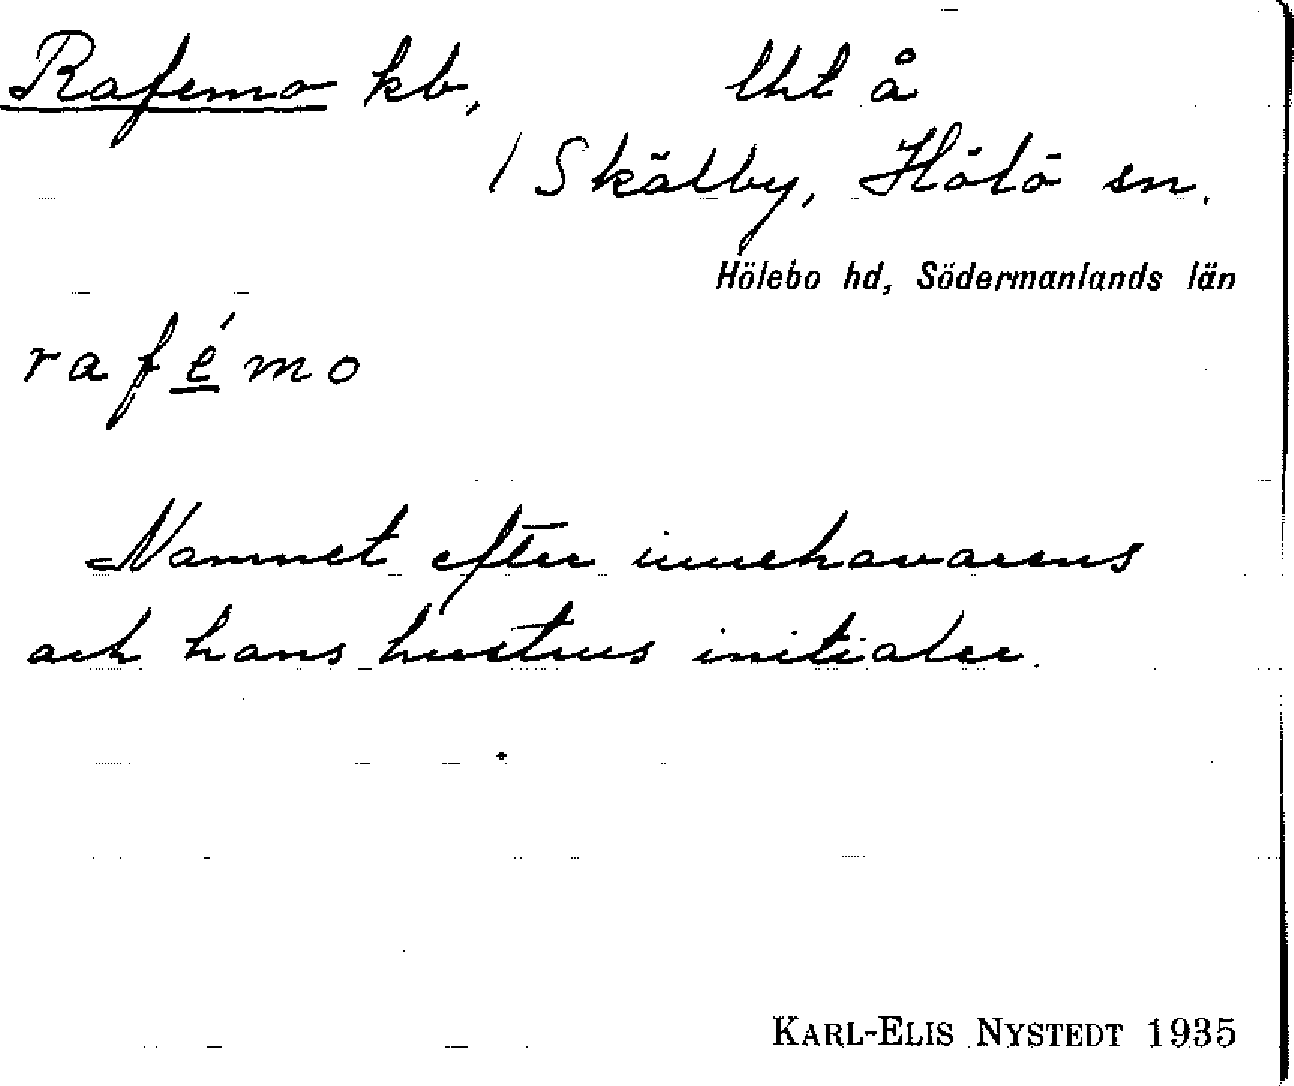 Rafemo kb, lht å
1 Skälby, Hölö sn.
Hölebo hd, Södermanlands län
rafémo
Namnet efter innehavarens
och hans hustrus initialer.
KARL-ELIS NYSTEDT 1935